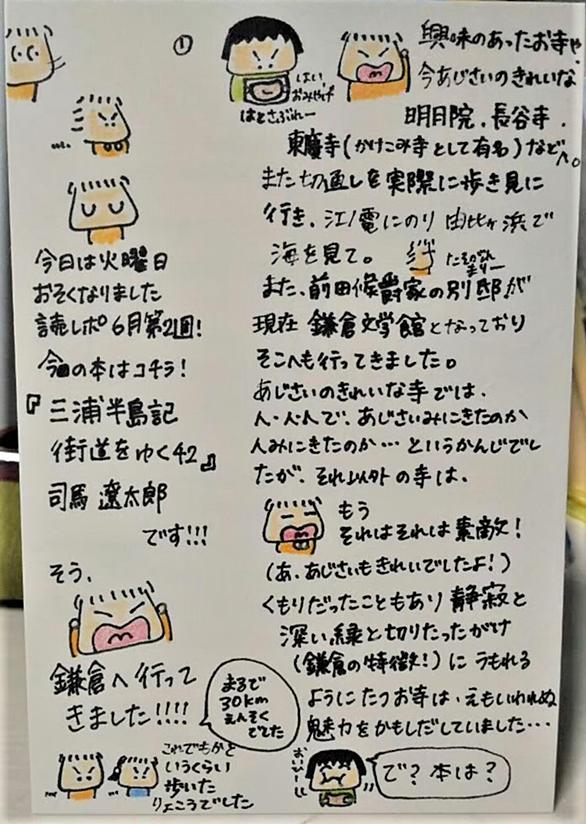 ①
今日は火曜日
おそくなりました
読レポ6月第2回!
今回の本はコチラ!
『三浦半島記
街道をゆく42』
司馬 遼太郎
です!!!
そう、
鎌倉へ行って
きました!!!!
まるで
30km
えんそく
でした
これでもかと
いうくらい
歩いた
りょこうでした
はい、
おみやげ
はとさぶれー
興味のあったお寺や、
今あじさいのきれいな
明月院、長谷寺、
東慶寺(かけこみ寺として有名)などへ。
また切通しを実際に歩き見に
行き、江ノ電にのり 由比ヶ浜で
海を見て。
また、前田侯爵家の別邸が
現在 鎌倉文学館となっており
そこへも行ってきました。
あじさいのきれいな寺では、
人・人・人で、あじさいみにきたのか
人みにきたのか…というかんじでし
たが、それ以外の寺は、
もう
それはそれは素敵!
(あ、あじさいもきれいでしたよ!)
くもりだったこともあり 静寂と
深い緑と切りたったがけ
(鎌倉の特徴!)に うもれる
ようにたつお寺は、えもいわれぬ
魅力をかもしだしていました…
おいひーし
で?本は?